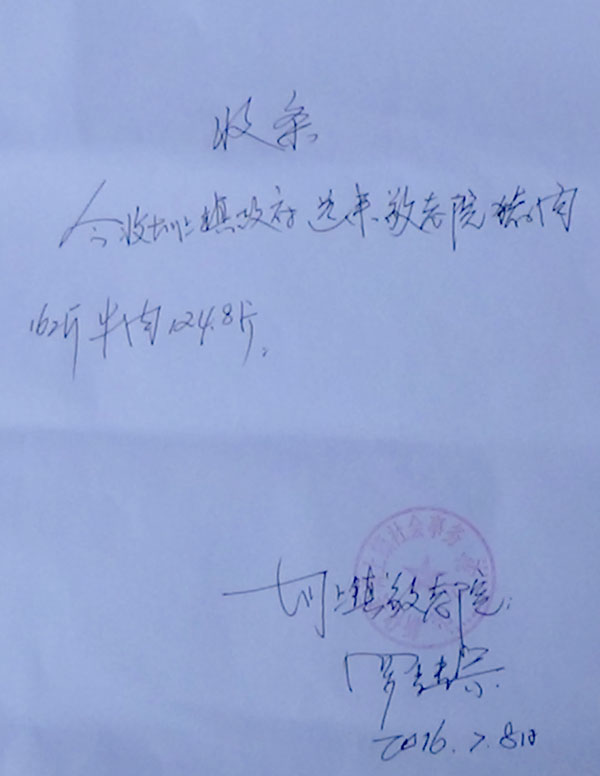 收条
今收圳上镇政府送来敬老院猪肉
162斤牛肉124.8斤。
社会事务
圳上镇敬老院
罗
2016.7.8日